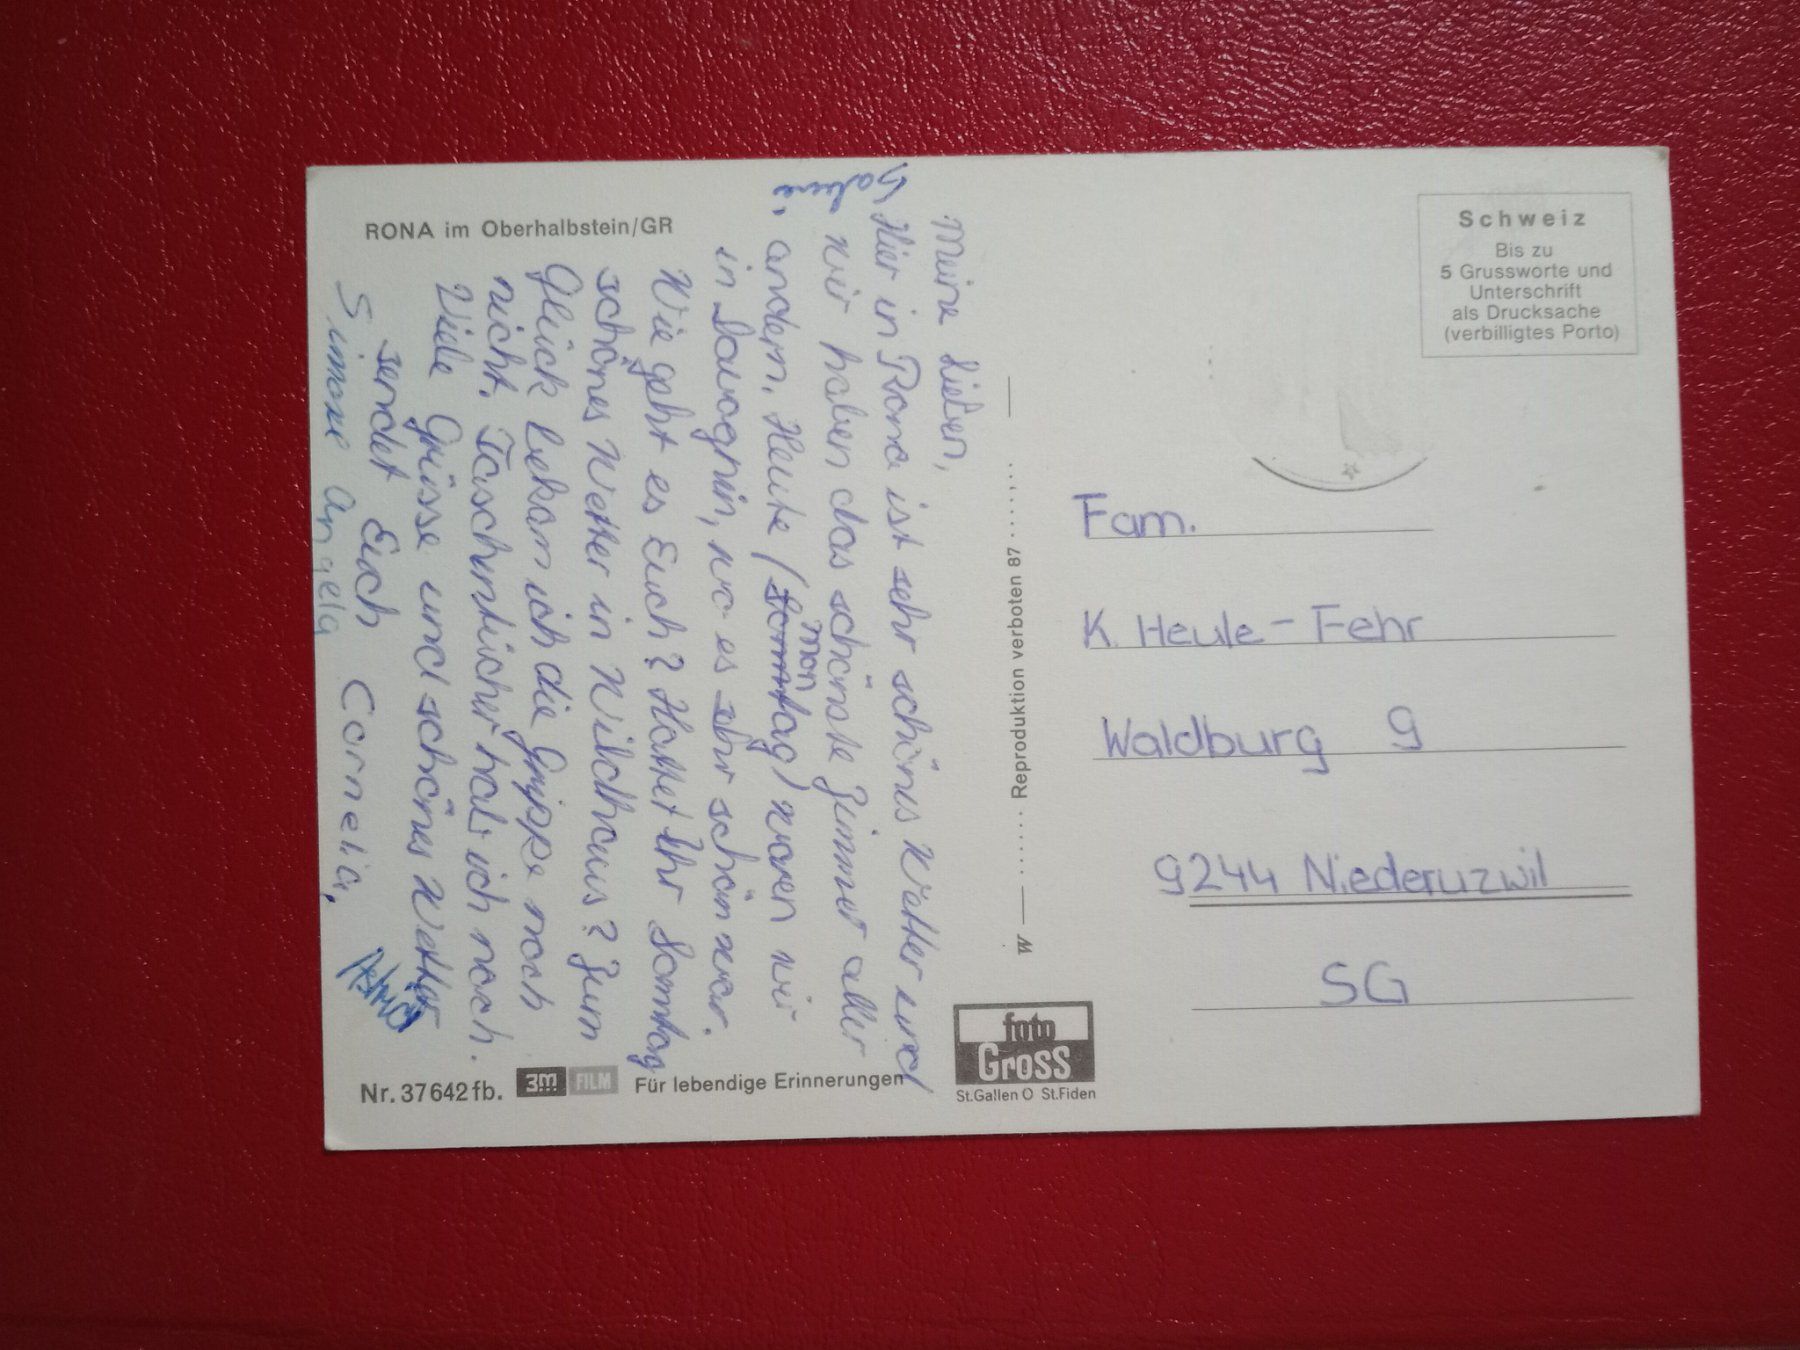 RONA im Oberhalbstein/GR
Meine Lieben,
Hier in Rona ist sehr schönes Wetter und
wir haben das schönste Zimmer aller
andern. Heute (Sonntag) waren wir
mon
in Savognin, wo es sehr schön war.
Wie geht es Euch? Hattet Ihr Sonntag
schönes Wetter in Wildhaus? Zum
Glück bekam ich die Grippe noch
nicht. Taschentücher hab ich noch.
Viele Grüsse und schönes Wetter
sendet Euch
Cornelia,
Simone Angela
Nr. 37642 fb. 3M FILM Für lebendige Erinnerungen
W Reproduktion verboten 87
foto
Gross
St.Gallen O St.Fiden
Schweiz
Bis zu
5 Grussworte und
Unterschrift
als Drucksache
(verbilligtes Porto)
Fam.
K. Heule-Fehr
Waldburg 9
9244 Niederuzwil
SG